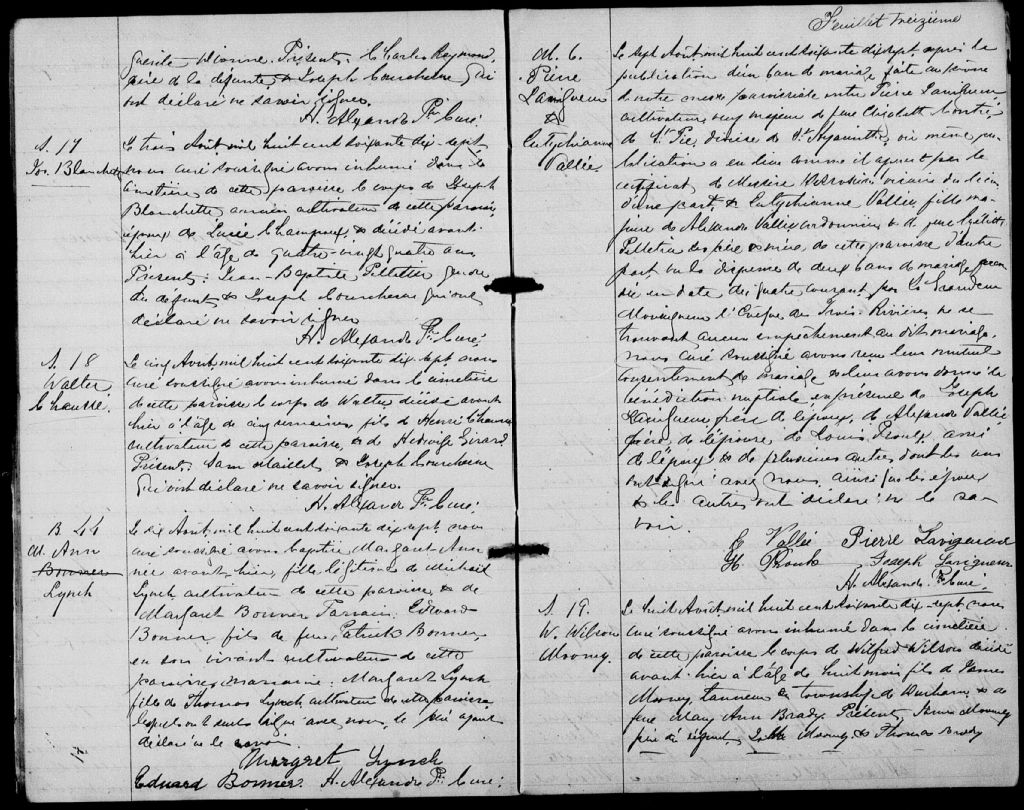 Présents: Charles Raymond,
père de la défunte, & Joseph Courchesne qui
ont déclaré ne savoir signer.
H. Alexandre Ptre Curé.
S. 17
Jos. Blanchette
Le trois Août, mil huit cent soixante dix-sept
nous curé soussigné avons inhumé dans le
cimetière de cette paroisse le corps de Joseph
Blanchette, ancien cultivateur de cette paroisse,
époux de Lucie Champoux, & décédé avant-
hier à l'âge de quatre-vingt quatre ans
Présents: Jean-Baptiste Pelletier gendre
du défunt & Joseph Courchesne qui ont
déclaré ne savoir signer
H. Alexandre Ptre Curé.
S. 18
Walter
Chaussé.
Le cinq Août, mil huit cent soixante dix-sept nous
curé soussigné avons inhumé dans le cimetière
de cette paroisse le corps de Walter décédé avant
hier à l'âge de cinq semaines fils de Henri Chaussé
cultivateur de cette paroisse, & de Hedwige Girard
Présents: Sam Maillet & Joseph Courchesne
qui ont déclaré ne savoir signer.
H. Alexandre Ptre Curé.
B 44
M. Ann
Bonner
Lynch
Le dix Août, mil huit cent soixante dix-sept nous
curé soussigné avons baptisé Margaret Ann
née avant-hier, fille légitime de Michael
Lynch cultivateur de cette paroisse, & de
Margaret Bonner Parrain: Edward
Bonner fils de feu Patrick Bonner
en son vivant cultivateur de cette
paroisse, marraine: Margaret Lynch
fille de Thomas Lynch, cultivateur de cette paroisse
lesquels ont seuls signé avec nous, le père ayant
déclaré ne le savoir
Margret Lynch
Edward Bonner H. Alexandre Ptre Curé.
Feuillet Treizième
M. 6.
Pierre
Lavigueur
&
Eutychianne
Vallée.
Le sept Août, mil huit cent soixante dix-sept, après la
publication d'un ban de mariage faite au prône
de notre messe paroissiale entre Pierre Lavigueur
cultivateur, veuf majeur de feue Elizabeth
de St Pie, diocèse de St Hyacinthe, où même pu-
blication a eu lieu comme il appert par le
certificat de Messire vicaire du lieu,
d'une part, & Eutychianne Vallée, fille ma-
jeure de Alexandre Vallée cordonnier, & de feue
Pelletier ses père & mère, de cette paroisse d'autre
part vu la dispense de deux bans de mariage accor-
dée en date du quatre courant par Sa Grandeur
Monseigneur l'Evêque des Trois-Rivières ne se
trouvant aucun empêchement au dit mariage,
nous curé soussigné avons reçu leur mutuel
consentement de mariage & leur avons donné la
bénédiction nuptiale en présence de Joseph
Lavigueur frère de l'époux, de Alexandre Vallée
père de l'épouse, de Louis Proulx, ami
de l'époux & de plusieurs autres, dont les uns
ont signé avec nous, ainsi que les époux
& les autres ont déclaré ne le sa-
voir
E Vallée Pierre Lavigueur
H Proulx Joseph Lavigueur
H. Alexandre Ptre Curé.
S. 19.
W. Wilson
Mooney.
Le huit Août, mil huit cent soixante dix-sept, nous
curé soussigné avons inhumé dans le cimetière
de cette paroisse le corps de Wilfred Wilson décédé
avant-hier à l'âge de huit mois fils de James
Mooney tanneur du Township de Durham, & de
feue Mary Ann Brady. Présents, Mooney
père du défunt, Mooney & Thomas Brady